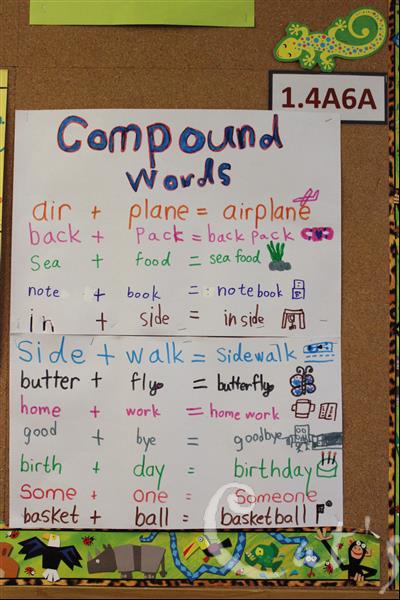 1.4A6A
Compound
Words
air + plane = airplane
back + pack = back pack
Sea + food = sea food
note + book = note book
in + side = in side
Side + walk = sidewalk
butter + fly = butterfly
home + work = home work
good + bye = goodbye
birth + day = birthday
Some + one = Someone
basket + ball = basketball
Cat's